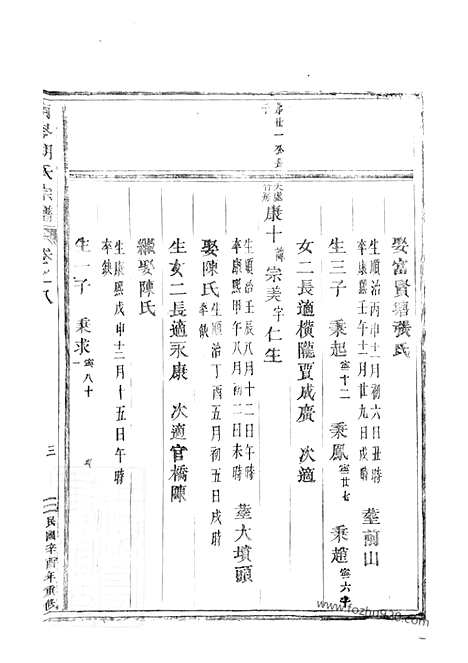 娶富賢塘張氏
生順治丙申十二月初六日丑時
卒康熙壬午十二月廿九日戌時
葬前山
生三子 秉起寧十二 秉鳳寧廿七 秉趙寧六十
女二長適橫隴賈成廣 次適
康十諱宗美字仁生
生順治壬辰八月十二日午時
卒康熙甲午八月初二日未時
葬大墳頭
娶陳氏
生順治丁酉五月初五日戌時
卒缺
生女二長適永康 次適官橋陳
繼娶陳氏
生康熙戊申十二月十五日午時
卒缺
生一子 秉求寧八十
胡氏宗譜 卷之八
三
民國辛酉年重修
www.fozhu920.com